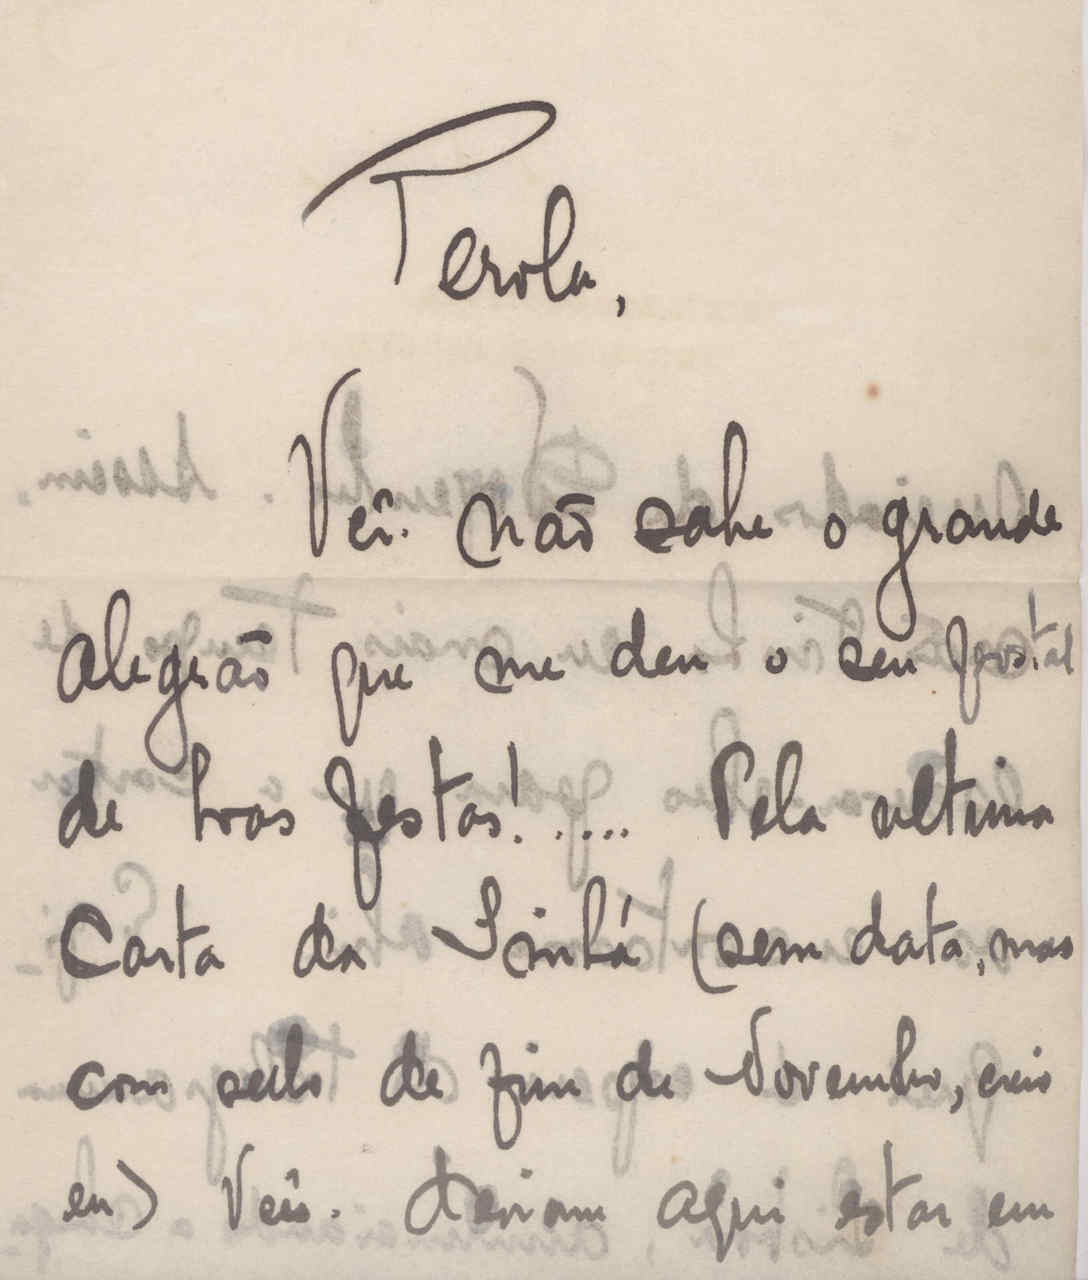 Perola,
Vcê. não sabe o grande
alegrão que me deu o seu postal
de boas festas!..... Pela ultima
Carta da Sinhá (sem data, mas
com sello de fim de Novembro, creio
eu) Vcês. deviam aqui estar em